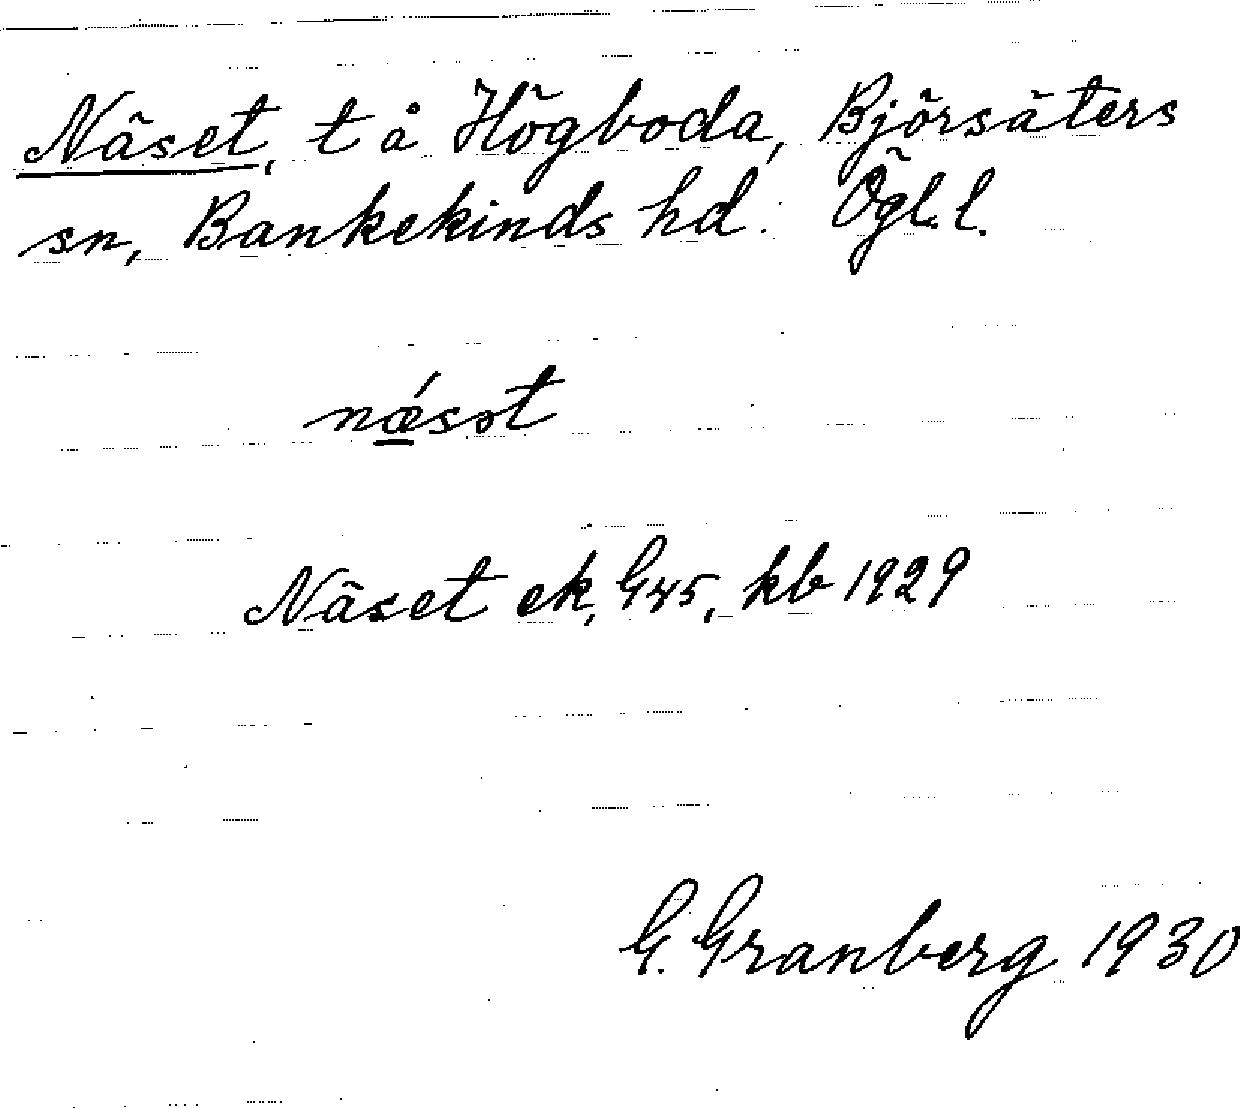 Näset, t å Högboda, Björsäters
sn, Bankekinds hd. Ögl.l.
nǽsət
Näset ek, G45, kb 1929
G. Granberg 1930